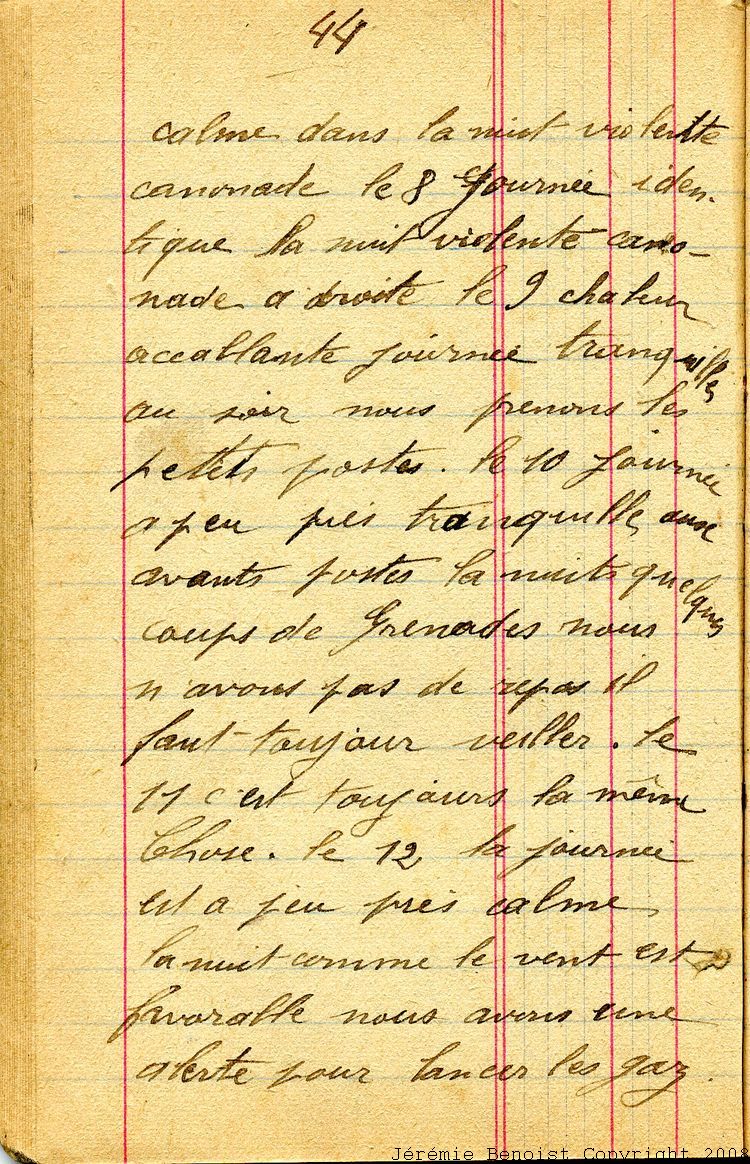 44
calme dans la nuit violente
canonade le 8 Journée iden-
tique la nuit violente cano-
nade a droite le 9 chaleur
accablante journée tranquille
au soir nous prenons les
petits postes. le 10 journée
a peu près tranquille aux
avants postes la nuits quelques
coups de Grenades nous
n'avons pas de repos il
faut toujour veiller. le
11 c'est toujours la même
Chose. le 12 la journée
est a peu près calme
la nuit comme le vent est
favorable nous avons une
alerte pour lancer les gaz.
Jérémie Benoist Copyright 2008